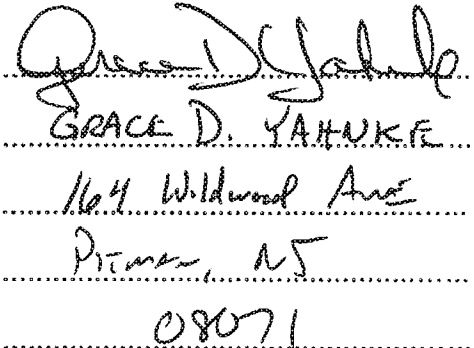 Grace D Yahnke
GRACE D. YAHNKE
164 Wildwood Ave
Pitman, NJ
08071